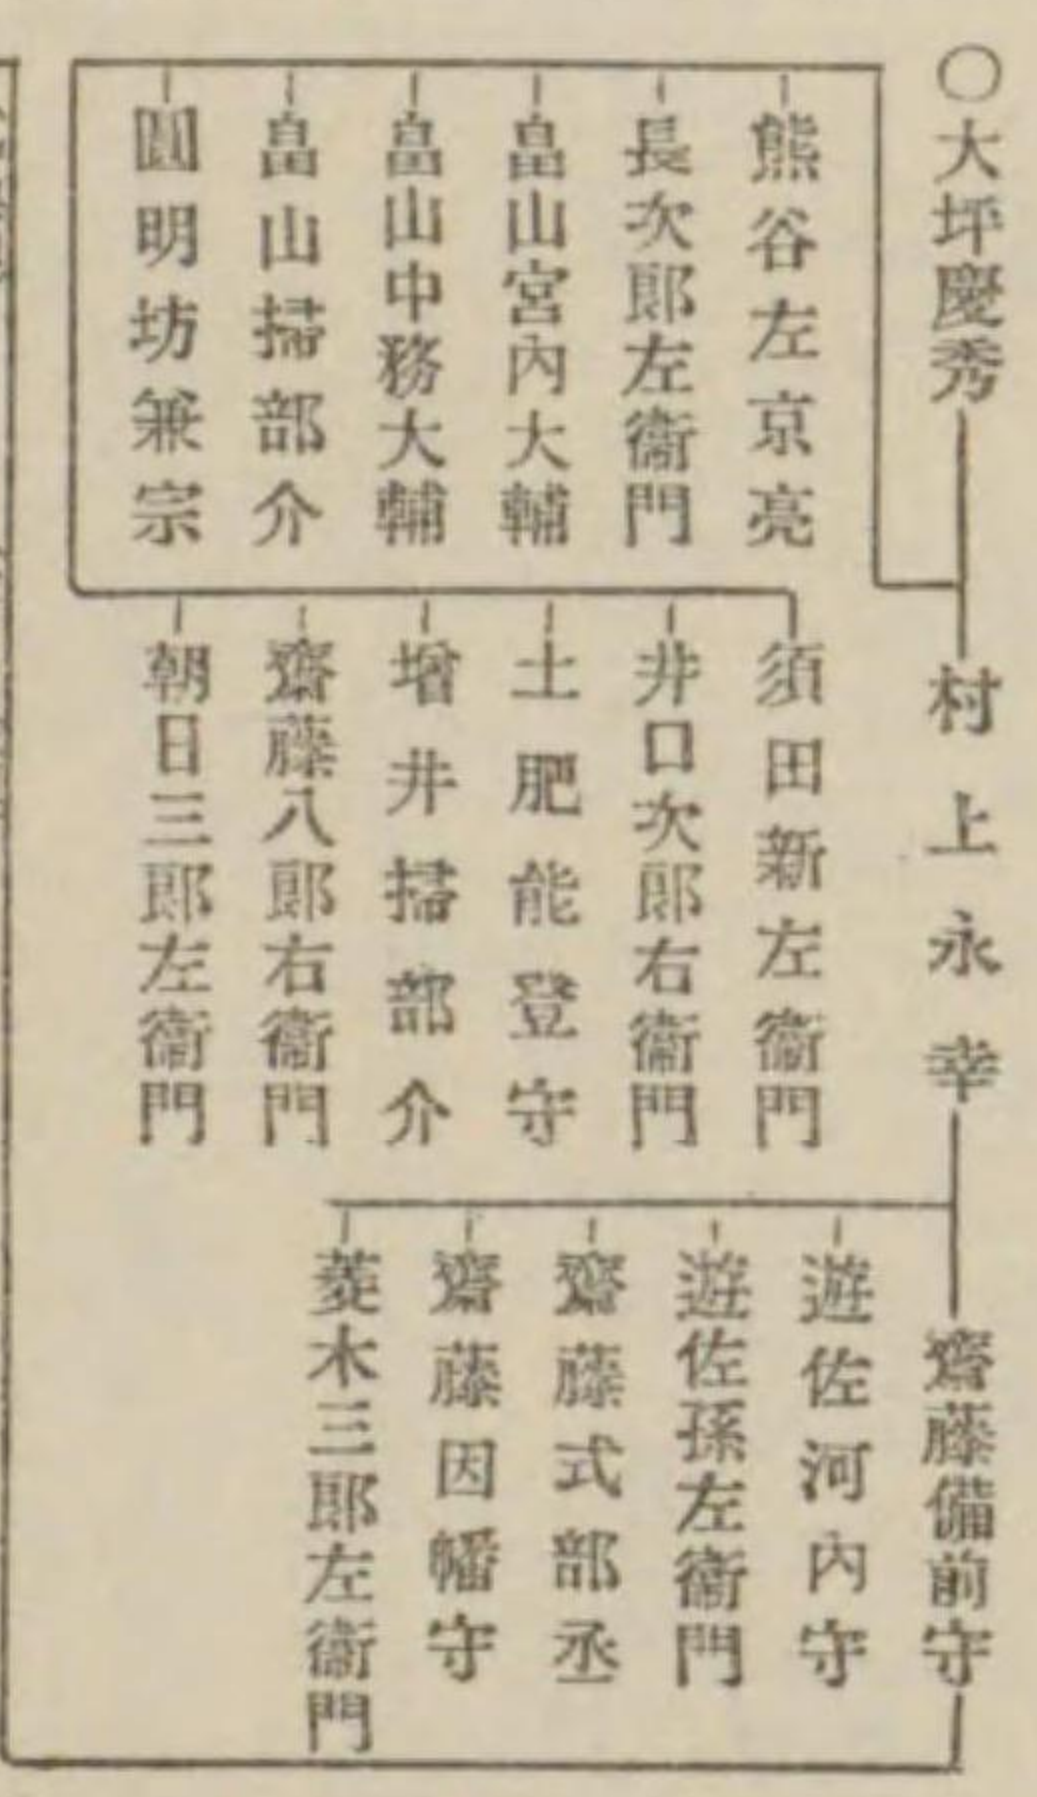 〇大坪慶秀
村上永幸
齋藤備前守
熊谷左京亮
長次郎左衞門
畠山宮內大輔
畠山中務大輔
畠山掃部介
圓明坊兼宗
須田新左衞門
井口次郎右衞門
土肥能登守
增井掃部介
齋藤八郎右衞門
朝日三郎左衞門
遊佐河內守
遊佐孫左衞門
齋藤式部丞
齋藤因幡守
菱木三郎左衞門